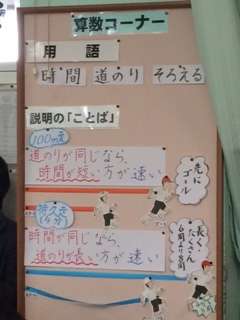 算数コーナー
用語
時間 道のり そろえる
説明の「ことば」
100m走
道のりが同じなら、
時間が短い方が速い
先に
ゴール
持久走
時間が同じなら、
道のりが長い方が速い
長く
たくさん